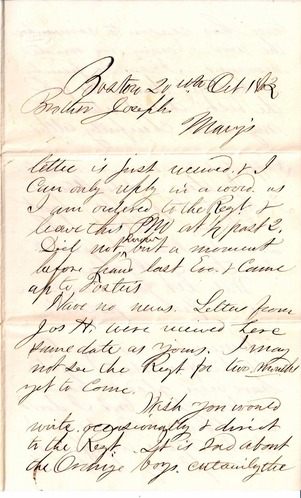 Boston 20th Oct 1862
Brother Joseph.
Mary's
letter is just received & I
can only reply in a word. as
I am ordered to the Regt &
leave this PM at ½ past 2.
Did not know but a moment
before last Eve. & Came
up to Fosters
I have no news. Letters from
Jos H. were received here
same date as yours. I may
not see the Regt for two months
yet to come.
Wish you would
write occasionally & direct
to the Regt. It is sad about
the Orange boys. certainly the